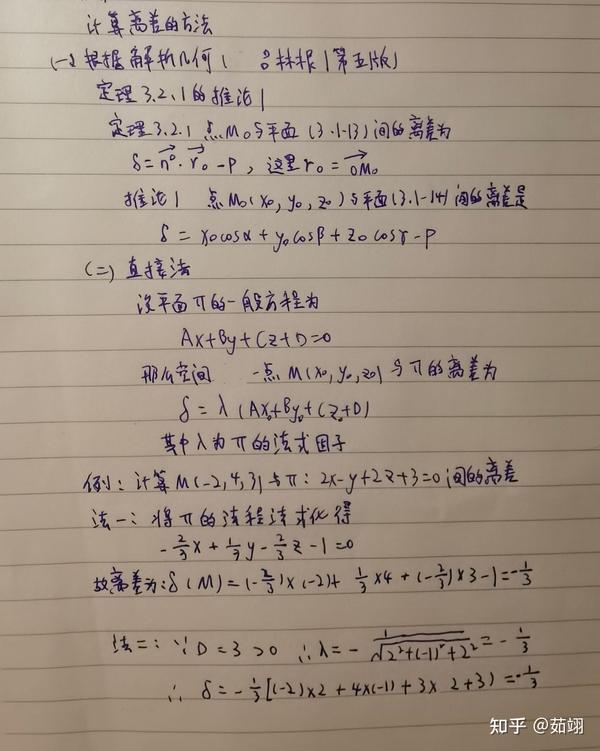 计算离差的方法
(一) 根据解析几何( 吕林根 | 第五版)
定理3.2.1的推论1
定理3.2.1 点M₀与平面(3.1-13)间的离差为
δ=n⁰·r₀-p, 这里r₀=OM₀
推论1 点M₀(x₀, y₀, z₀)与平面(3.1-14)间的离差是
δ = x₀cosα+y₀cosβ+z₀cosγ-p
(二) 直接法
设平面π的一般方程为
Ax+By+Cz+D=0
那么空间 一点M(x₀, y₀, z₀)与π的离差为
δ=λ(Ax₀+By₀+Cz₀+D)
其中λ为π的法式因子
例: 计算M(-2,4,3)与π: 2x-y+2z+3=0间的离差
法一: 将π的方程法式化得
-2/3x+1/3y-2/3z-1=0
故离差为:δ(M)=(-2/3)×(-2)+1/3×4+(-2/3)×3-1=-1/3
法二: ∵D=3>0 ∴λ=-1/√2²+(-1)²+2²=-1/3
∴ δ=-1/3[(-2)×2+4×(-1)+3×2+3)=-1/3
知乎 @茹翊